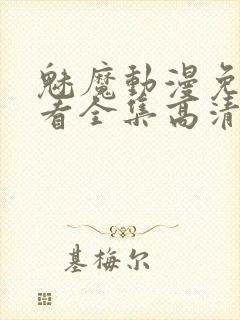 魅魔動漫免
看全集高清
基梅尔